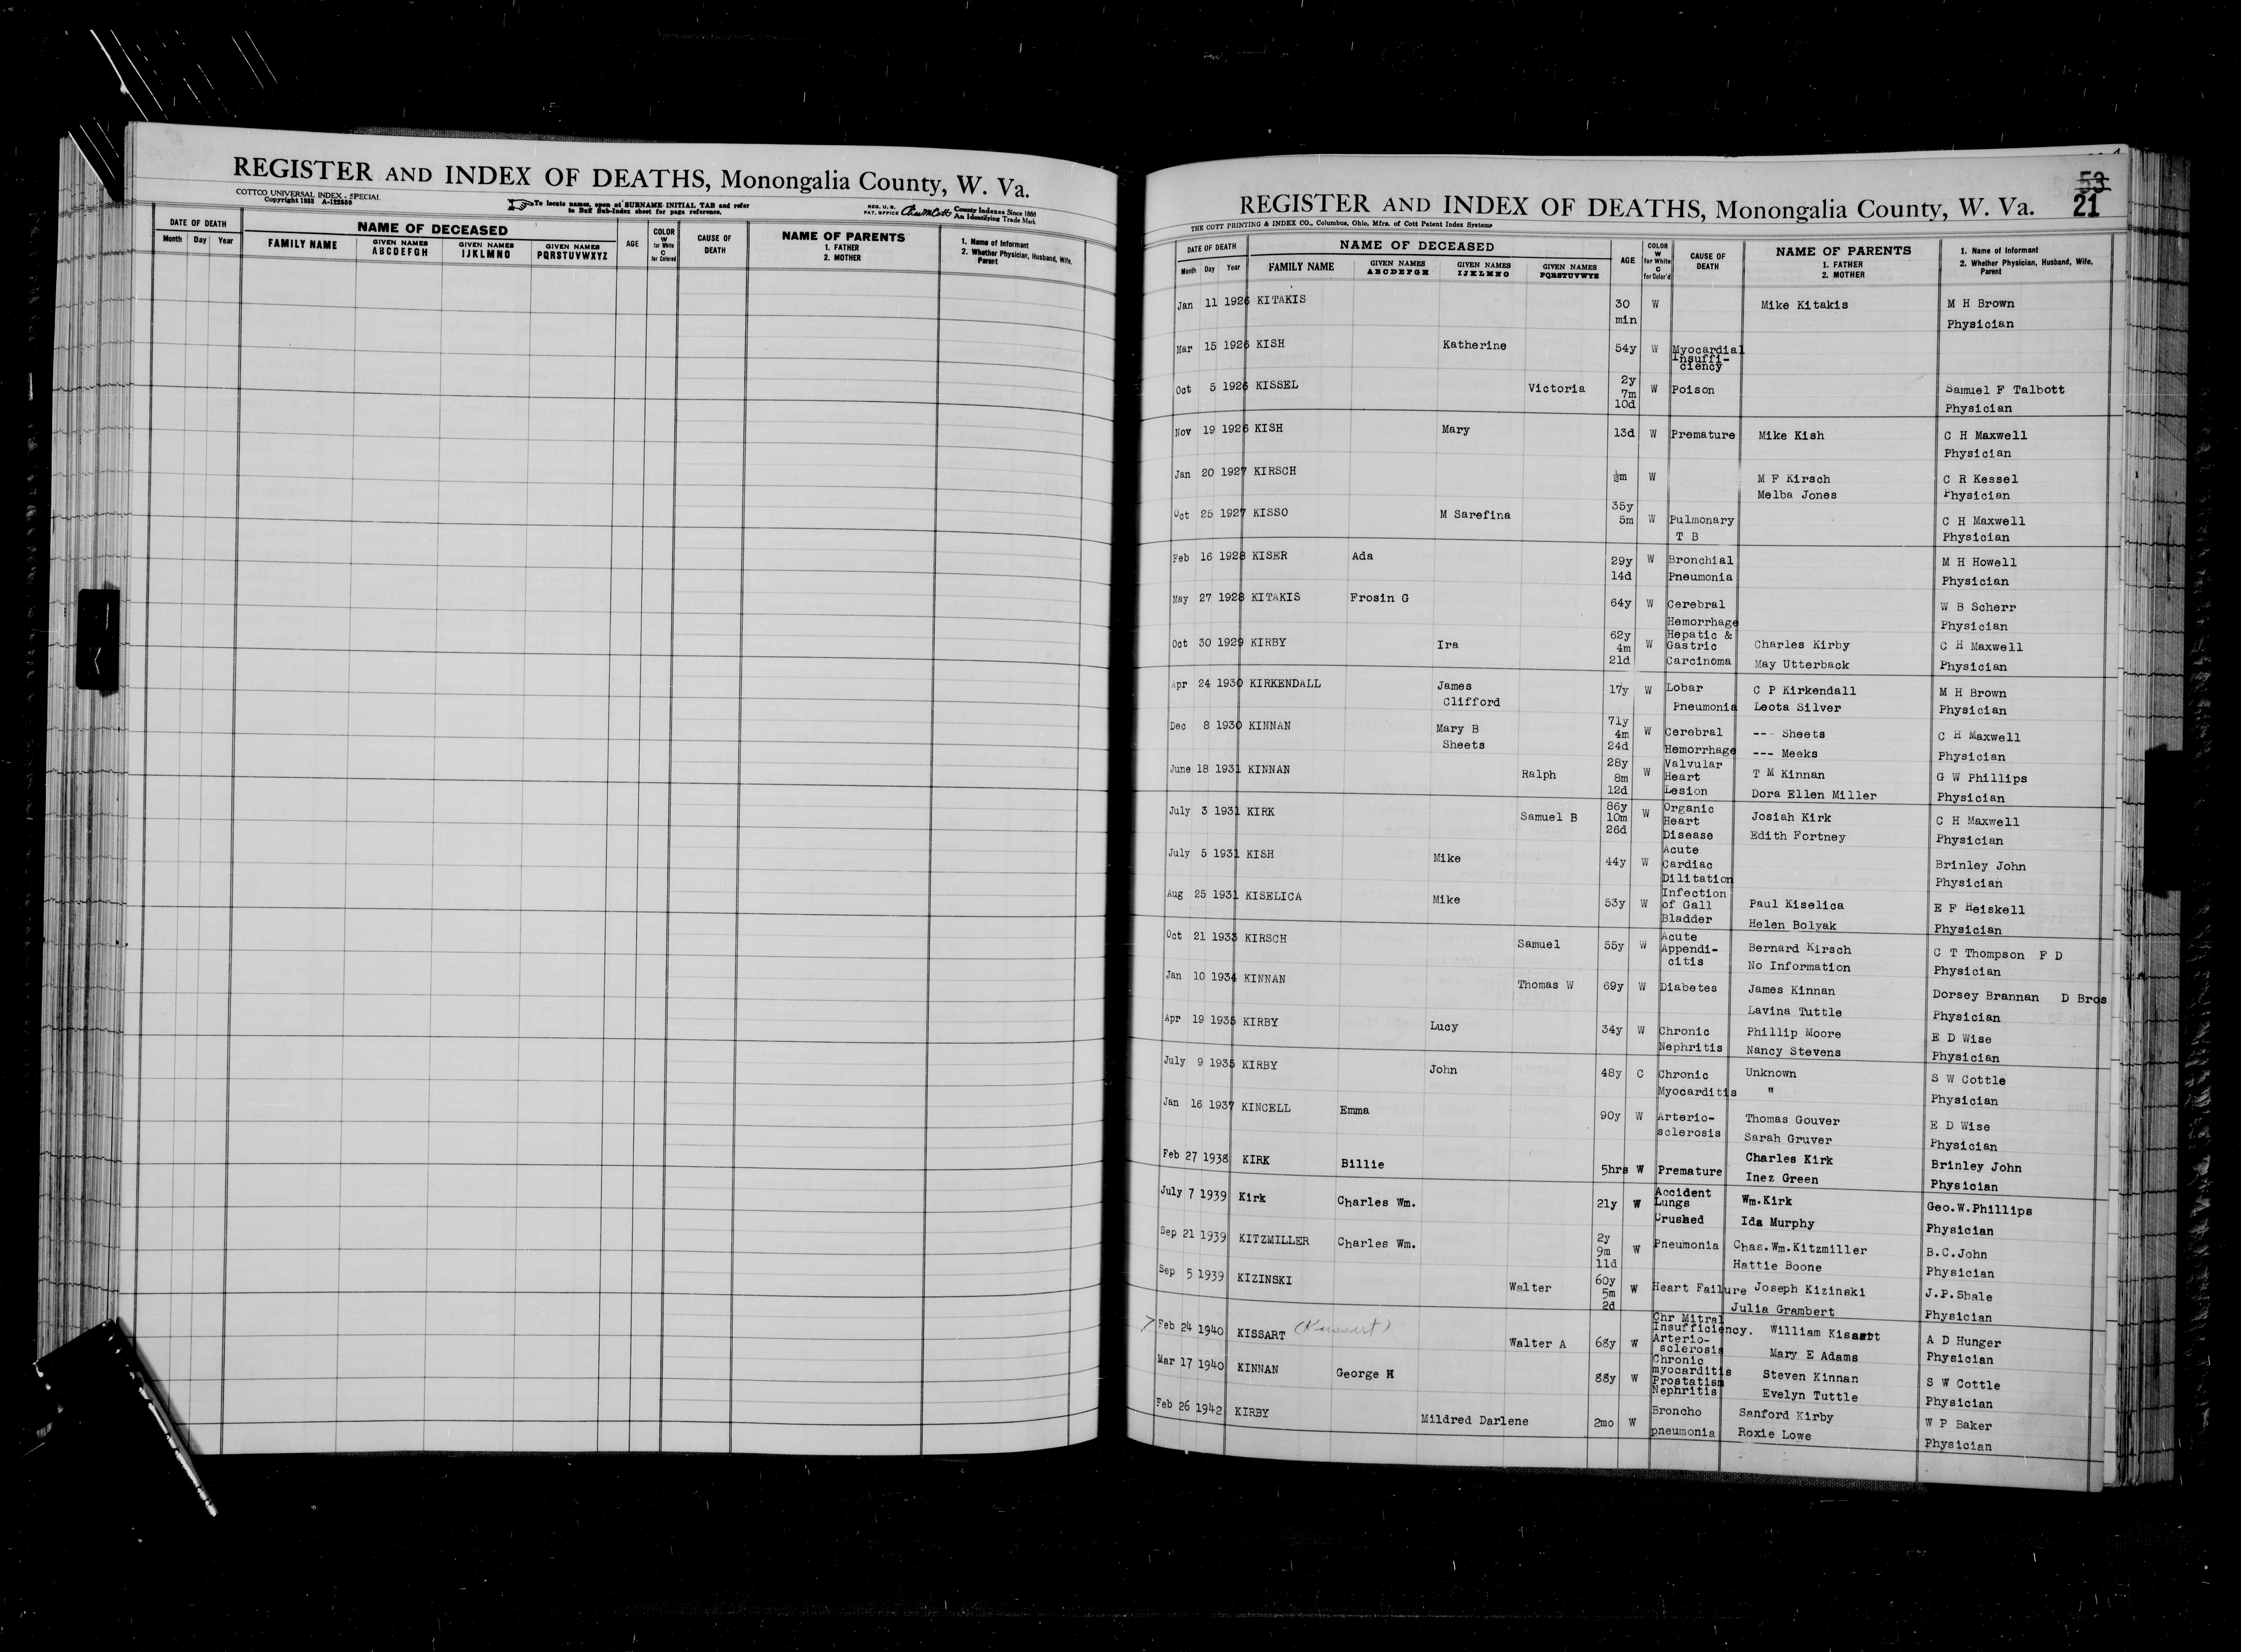 REGISTER AND INDEX OF DEATHS, Monongalia County, W. Va.
COTTCO UNIVERSAL INDEX - SPECIAL
Copyright 1933 A-122559
To locate names, open at SURNAME INITIAL TAB and refer
to Buff Sub-Index sheet for page reference.
REG. U. S.
PAT. OFFICE
County Indexes Since 1888
An Identifying Trade Mark
DATE OF DEATH
Month Day Year
NAME OF DECEASED
FAMILY NAME
GIVEN NAMES
ABCDEFGH
GIVEN NAMES
IJKLMNO
GIVEN NAMES
PQRSTUVWXYZ
AGE
COLOR
W
for White
C
for Colored
CAUSE OF
DEATH
NAME OF PARENTS
1. FATHER
2. MOTHER
1. Name of Informant
2. Whether Physician, Husband, Wife,
Parent
53
21
REGISTER AND INDEX OF DEATHS, Monongalia County, W. Va.
THE COTT PRINTING & INDEX CO., Columbus, Ohio, Mfrs. of Cott Patent Index Systems
DATE OF DEATH
Month Day Year
NAME OF DECEASED
FAMILY NAME
GIVEN NAMES
ABCDEFGH
GIVEN NAMES
IJKLMNO
GIVEN NAMES
PQRSTUVWYZ
AGE
COLOR
W
for White
C
for Color'd
CAUSE OF
DEATH
NAME OF PARENTS
1. FATHER
2. MOTHER
1. Name of Informant
2. Whether Physician, Husband, Wife,
Parent
Jan 11 1926 KITAKIS 30 W Mike Kitakis M H Brown
min Physician
Mar 15 1926 KISH Katherine 54y W Myocardial
Insuffi-
ciency
Oct 5 1926 KISSEL Victoria 2y W Poison Samuel F Talbott
7m
10d Physician
Nov 19 1926 KISH Mary 13d W Premature Mike Kish C H Maxwell
Physician
Jan 20 1927 KIRSCH ½m W M F Kirsch C R Kessel
Melba Jones Physician
Oct 25 1927 KISSO M Sarefina 35y
5m W Pulmonary C H Maxwell
T B Physician
Feb 16 1928 KISER Ada 29y W Bronchial M H Howell
14d Pneumonia Physician
May 27 1928 KITAKIS Frosin G 64y W Cerebral W B Scherr
Hemorrhage Physician
Oct 30 1929 KIRBY Ira 62y Hepatic &
4m W Gastric Charles Kirby C H Maxwell
21d Carcinoma May Utterback Physician
Apr 24 1930 KIRKENDALL James 17y W Lobar C P Kirkendall M H Brown
Clifford Pneumonia Leota Silver Physician
Dec 8 1930 KINNAN Mary B 71y
Sheets 4m W Cerebral --- Sheets C H Maxwell
24d Hemorrhage --- Meeks Physician
June 18 1931 KINNAN Ralph 28y Valvular
8m W Heart T M Kinnan G W Phillips
12d Lesion Dora Ellen Miller Physician
July 3 1931 KIRK Samuel B 86y Organic
10m W Heart Josiah Kirk C H Maxwell
26d Disease Edith Fortney Physician
July 5 1931 KISH Mike 44y W Acute
Cardiac Brinley John
Dilitation Physician
Aug 25 1931 KISELICA Mike 53y W Infection
of Gall Paul Kiselica E F Heiskell
Bladder Helen Bolyak Physician
Oct 21 1933 KIRSCH Samuel 55y W Acute
Appendi- Bernard Kirsch C T Thompson F D
citis No Information Physician
Jan 10 1934 KINNAN Thomas W 69y W Diabetes James Kinnan Dorsey Brannan D Bros
Lavina Tuttle Physician
Apr 19 1935 KIRBY Lucy 34y W Chronic Phillip Moore E D Wise
Nephritis Nancy Stevens Physician
July 9 1935 KIRBY John 48y C Chronic Unknown S W Cottle
Myocarditis " Physician
Jan 16 1937 KINCELL Emma 90y W Arterio- Thomas Gouver E D Wise
sclerosis Sarah Gruver Physician
Feb 27 1938 KIRK Billie 5hrs W Premature Charles Kirk Brinley John
Inez Green Physician
July 7 1939 Kirk Charles Wm. 21y W Accident
Lungs Wm.Kirk Geo.W.Phillips
Crushed Ida Murphy Physician
Sep 21 1939 KITZMILLER Charles Wm. 2y
9m W Pneumonia Chas.Wm.Kitzmiller B.C.John
11d Hattie Boone Physician
Sep 5 1939 KIZINSKI Walter 60y
5m W Heart Failure Joseph Kizinski J.P.Shale
2d Julia Grambert Physician
Feb 24 1940 KISSART Walter A 68y W Chr Mitral
Insufficiency. William Kisart A D Hunger
Arterio-
sclerosis Mary E Adams Physician
Mar 17 1940 KINNAN George H 88y W Chronic
myocarditis Steven Kinnan S W Cottle
Prostatism
Nephritis Evelyn Tuttle Physician
Feb 26 1942 KIRBY Mildred Darlene 2mo W Broncho Sanford Kirby W P Baker
pneumonia Roxie Lowe Physician